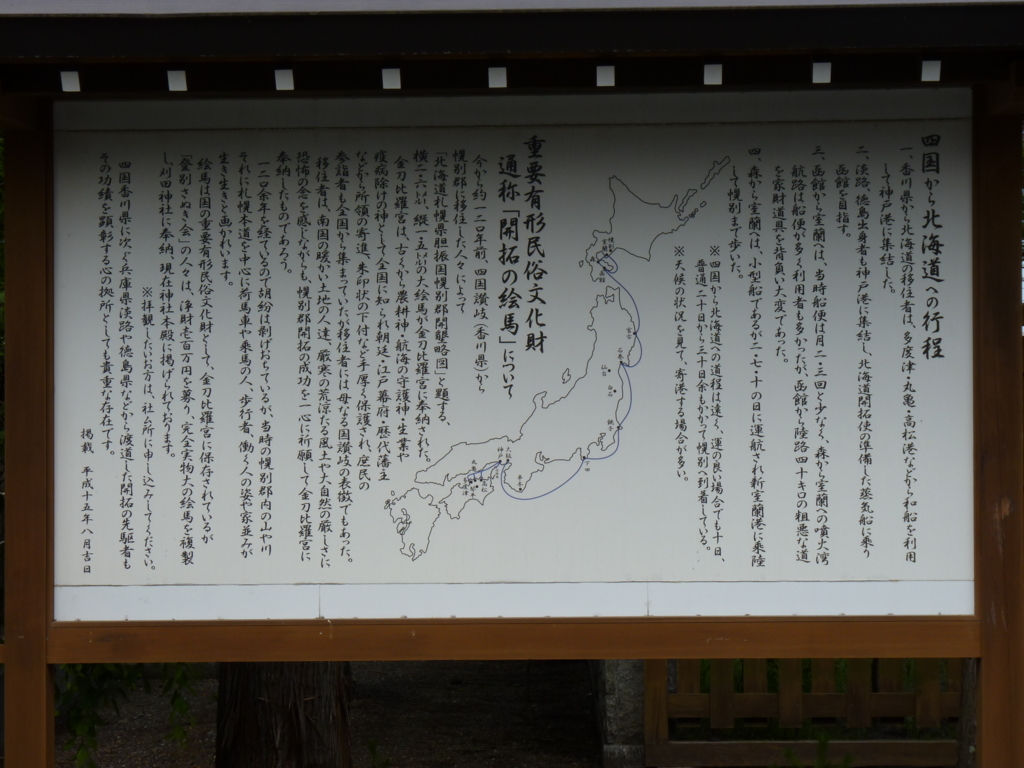 四国から北海道への行程
一、香川県から北海道の移住者は、多度津・丸亀・高松港などから和船を利用
して神戸港に集結した。
二、淡路、徳島出身者も神戸港に集結し、北海道開拓使の準備した蒸気船に乗り
函館を目指す。
三、函館から室蘭へは、当時船便は月二・三回と少なく、森から室蘭への噴火湾
航路は船便が多く利用者も多かったが、函館から陸路四十キロの粗悪な道
を家財道具を背負い大変であった。
四、森から室蘭へは、小型船であるが二・七・十の日に運航され新室蘭港に乗陸
して幌別まで歩いた。
※四国から北海道への道程は遠く、運の良い場合でも十日、
普通二十日から三十日余もかかって幌別へ到着している。
※天候の状況を見て、寄港する場合が多い。
幌別
室蘭
森
函館
宮古
石巻
仙台
銚子
下田
大阪
神戸
高松
丸亀
多度津
重要有形民俗文化財
通称「開拓の絵馬」について
今から約一二〇年前、四国讃岐(香川県)から
幌別郡に移住した人々によって
「北海道札幌県胆振国幌別郡開墾略図」と題する、
横二・六六㍍、縦一・五八㍍の大絵馬が金刀比羅宮に奉納された。
金刀比羅宮は、古くから農耕神・航海の守護神・生業や
疫病除けの神として全国に知られ朝廷・江戸幕府・歴代藩主
などから所領の寄進、朱印状の下付など手厚く保護され、庶民の
参詣者も全国から集まっていたが移住者には母なる国讃岐の表徴でもあった。
移住者は、南国の暖かい土地の人達、厳寒の荒涼たる風土や大自然の厳しさに
恐怖の念を感じながらも、幌別郡開拓の成功を一心に祈願して金刀比羅宮に
奉納したものであろう。
一二〇余年を経ているので胡粉は剥げおちているが、当時の幌別郡内の山や川
それに札幌本道を中心に荷馬車や乗馬の人、歩行者、働く人の姿や家並みが
生き生きと画かれています。
絵馬は国の重要有形民俗文化財として、金刀比羅宮に保存されているが
「登別・さぬき会」の人々は、浄財壱百万円を募り、完全実物大の絵馬を複製
し、刈田神社に奉納、現在神社本殿に掲げられております。
※拝観したいお方は、社ム所に申し込みしてください。
四国香川県に次ぐ兵庫県淡路や徳島県などから渡道した開拓の先駆者も
その功績を顕彰する心の拠所としても貴重な存在です。
掲載 平成十五年八月吉日